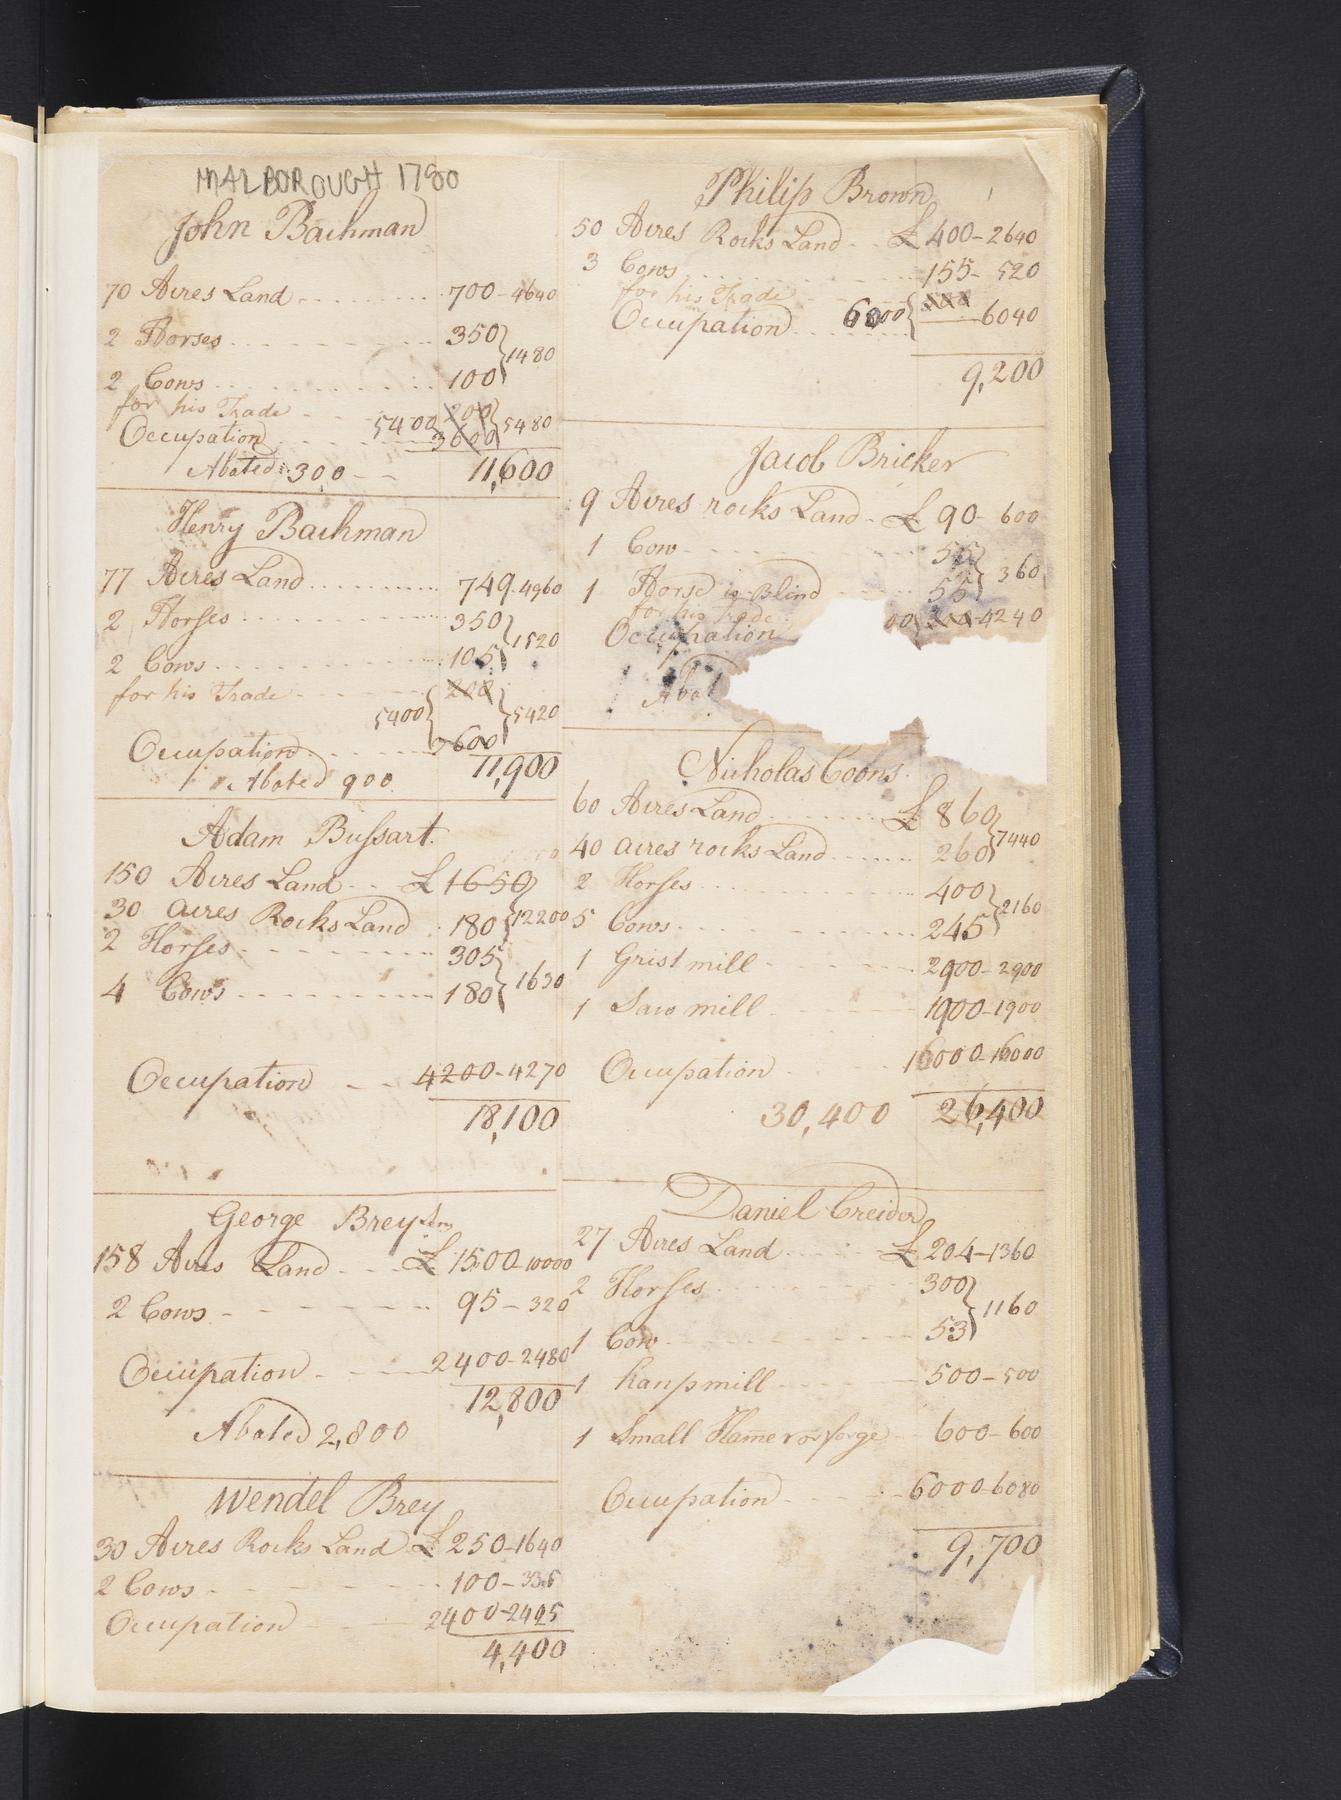 MALBOROUGH 1780
John Bachman
70 Acres Land 700-4640
2 Horses 350
1480
2 Cows 100
for his Trade 200
5400 5480
Occupation 3600
Abated 300 11,600
Henry Bachman
77 Acres Land 749-4960
2 Horses 350
1520
2 Cows 105
for his Trade 200
5400 5420
Occupation 3600
Abated 900 11,900
Adam Bussart
150 Acres Land £1650
12200
30 acres Rocks Land 180
2 Horses 305
1630
4 Cows 180
Occupation 4200-4270
18,100
George Brey Snr
158 Acres Land £1500-10000
2 Cows 95-320
Occupation 2400-2480
12,800
Abated 2,800
Wendel Brey
30 Acres Rocks Land £250-1640
2 Cows 100-335
Occupation 2400-2425
4,400
Philip Brown
50 Acres Rocks Land £400-2640
3 Cows 155-520
for his Trade
Occupation 6000 6040
9,200
Jacob Bricker
9 Acres rocks Land £90-600
1 Cow 55
360
1 Horse is Blind 55
for his Trade
Occupation 00 200-4240
Abat
Nicholas Coons
60 Acres Land £860
7440
40 acres rocks Land 260
2 Horses 400
2160
5 Cows 245
1 Grist mill 2900-2900
1 Saw mill 1900-1900
Occupation 16000-16000
30,400 26,400
Daniel Creider
27 Acres Land £204-1360
2 Horses 300
1160
1 Cow 53
1 hanp mill 500-500
1 Small Hamer or forge 600-600
Occupation 6000-6080
9,700